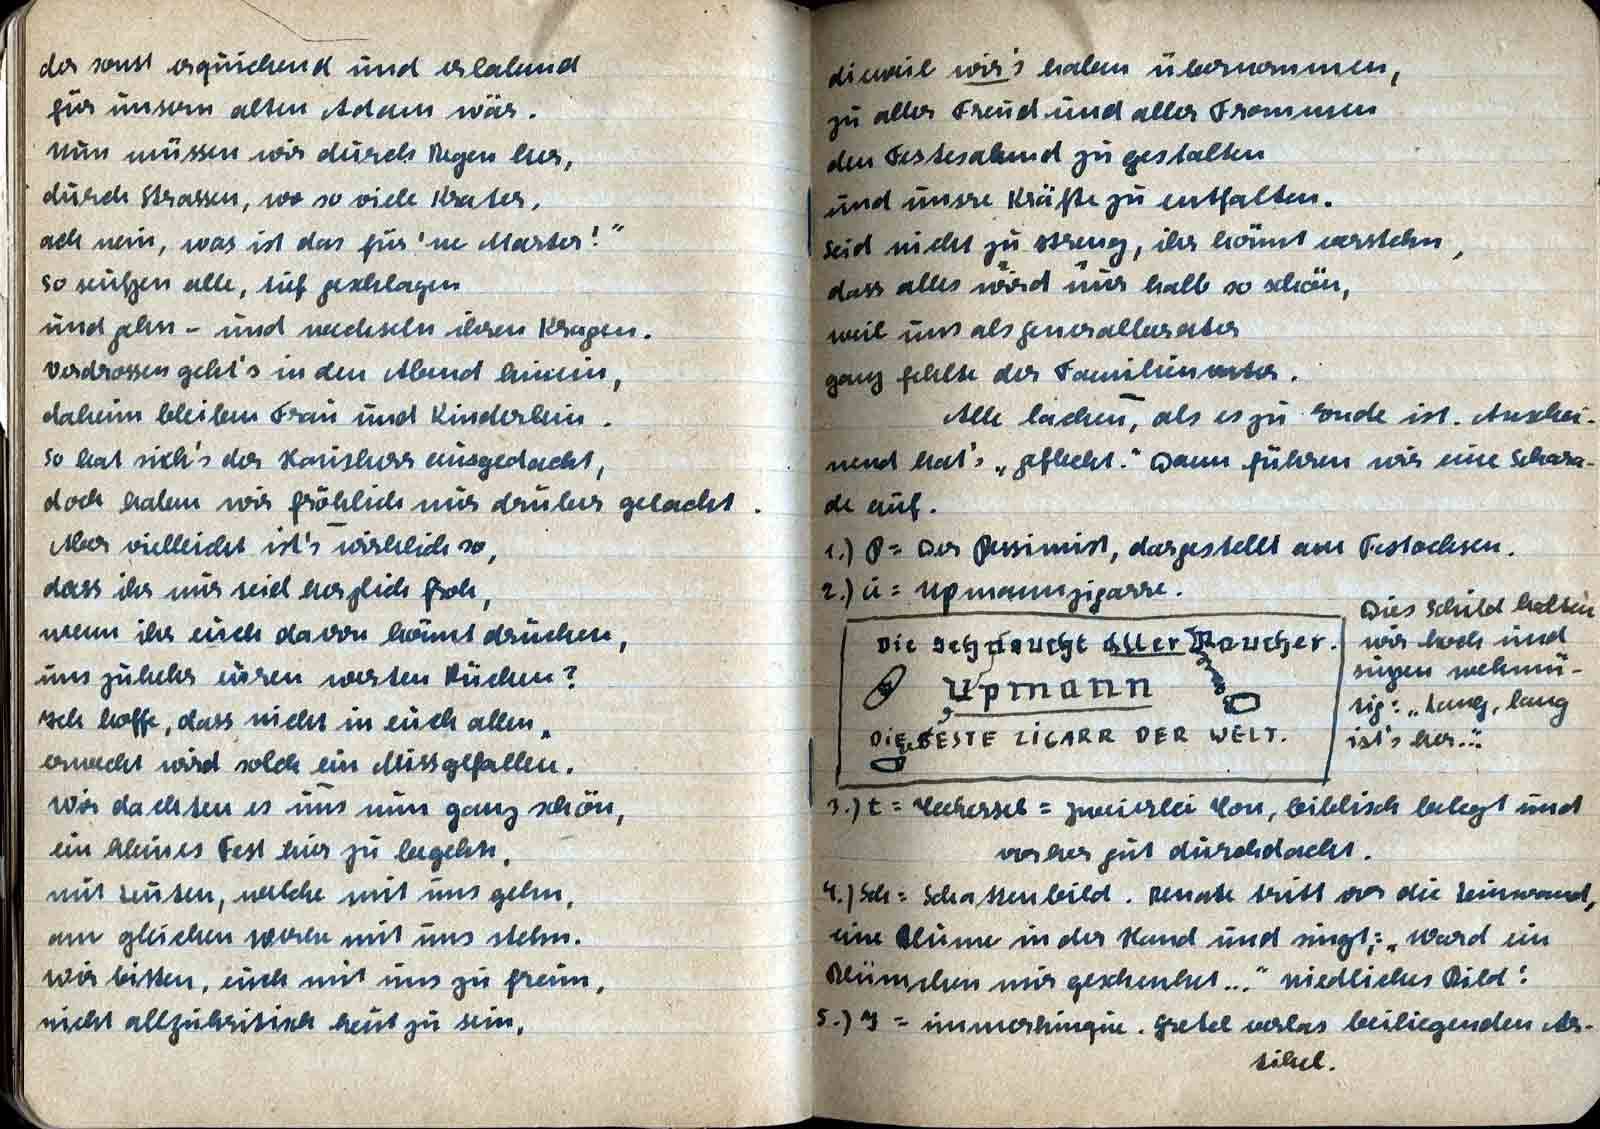 der sonst erquickend und erlabend
für unsern alten Adam wär.
Nun müssen wir durch Regen her,
durch Strassen, wo so viele Krater,
ach nein, was ist das für 'ne Marter!"
So seufzen alle, tief geschlagen
und gehn - und wechseln ihren Kragen.
Verdrossen geht's in den Abend hinein,
daheim bleiben Frau und Kinderlein.
So hat sich's der Hausherr ausgedacht,
doch haben wir fröhlich nur drüber gelacht.
Aber vielleicht ist's wirklich so,
dass ihr nur seid herzlich froh,
wenn ihr euch davon könnt drücken,
uns zukehr euren werten Rücken?
Ich hoffe, dass nicht in euch allen,
erweckt wird solch ein Missgefallen.
Wir dachten es uns nun ganz schön,
ein kleines Fest hier zu begehn,
mit Leuten, welche mit uns gehn,
am gleichen Werke mit uns stehn.
Wir bitten, euch mit uns zu freun,
nicht allzukritisch heut zu sein,
dieweil wir's haben übernommen,
zu aller Freud und aller Frommen
den Festesabend zu gestalten
und unsre Kräfte zu entfalten.
Seid nicht zu streng, ihr könnt verstehn,
dass alles wird nur halb so schön,
weil uns als Generalberater
ganz fehlte der Familienvater.
Alle lachen, als es zu Ende ist. Anschei-
nend hat's „gefleckt." Dann führen wir eine Schara-
de auf.
1.) P = Der Pessimist, dargestellt am Festochsen.
2.) U = Upmannzigarre.
Die Sehnsucht aller Raucher.
Upmann
DIE BESTE ZIGARR DER WELT.
Dies Schild halten
wir hoch und
singen wehmü-
tig: „Lang, lang
ist's her..."
3.) t = = zweierlei biblisch belegt und
vorher gut durchdacht.
4.) Sch = Schattenbild. Renate tritt vor die Leinwand,
eine Blume in der Hand und singt: „Ward ein
Blümchen mir geschenket..." niedliches Bild!
5.) I = immerhinque. Gretel verlas beiliegenden Ar-
tikel.